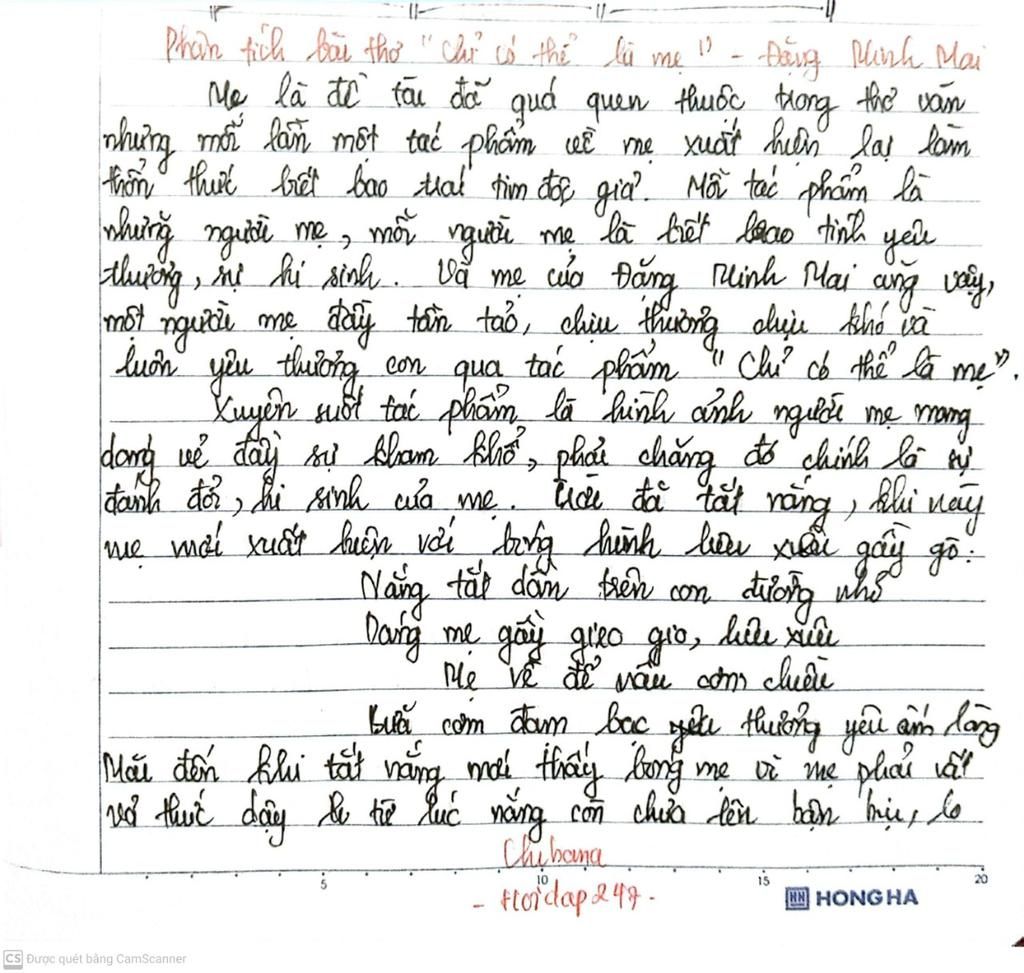 Phân tích bài thơ "Chỉ có thể là mẹ" - Đặng Minh Mai
Mẹ là đề tài đã quá quen thuộc trong thơ văn
nhưng mỗi lần một tác phẩm về mẹ xuất hiện lại làm
thổn thức biết bao trái tim độc giả. Mỗi tác phẩm là
những người mẹ, mỗi người mẹ là biết bao tình yêu
thương, sự hi sinh. Và mẹ của Đặng Minh Mai cũng vậy,
một người mẹ đầy tần tảo, chịu thương chịu khó và
luôn yêu thương con qua tác phẩm "Chỉ có thể là mẹ".
Xuyên suốt tác phẩm là hình ảnh người mẹ mang
dáng vẻ đầy sự kham khổ, phải chăng đó chính là sự
đánh đổi, hi sinh của mẹ. Trời đã tắt nắng, khi này
mẹ mới xuất hiện với bóng hình liêu xiêu gầy gò:
Nắng tắt dần trên con đường nhỏ
Dáng mẹ gầy gieo gió, liêu xiêu
Mẹ về để nấu cơm chiều
Bữa cơm đạm bạc thương yêu ấm lòng
Mãi đến khi tắt nắng mới thấy bóng mẹ vì mẹ phải vất
vả thức dậy từ lúc nắng còn chưa lên bận bịu, lo
Chibana
- Hoidap247 -
5 10 15 20
HN HONG HA
CS Được quét bằng CamScanner